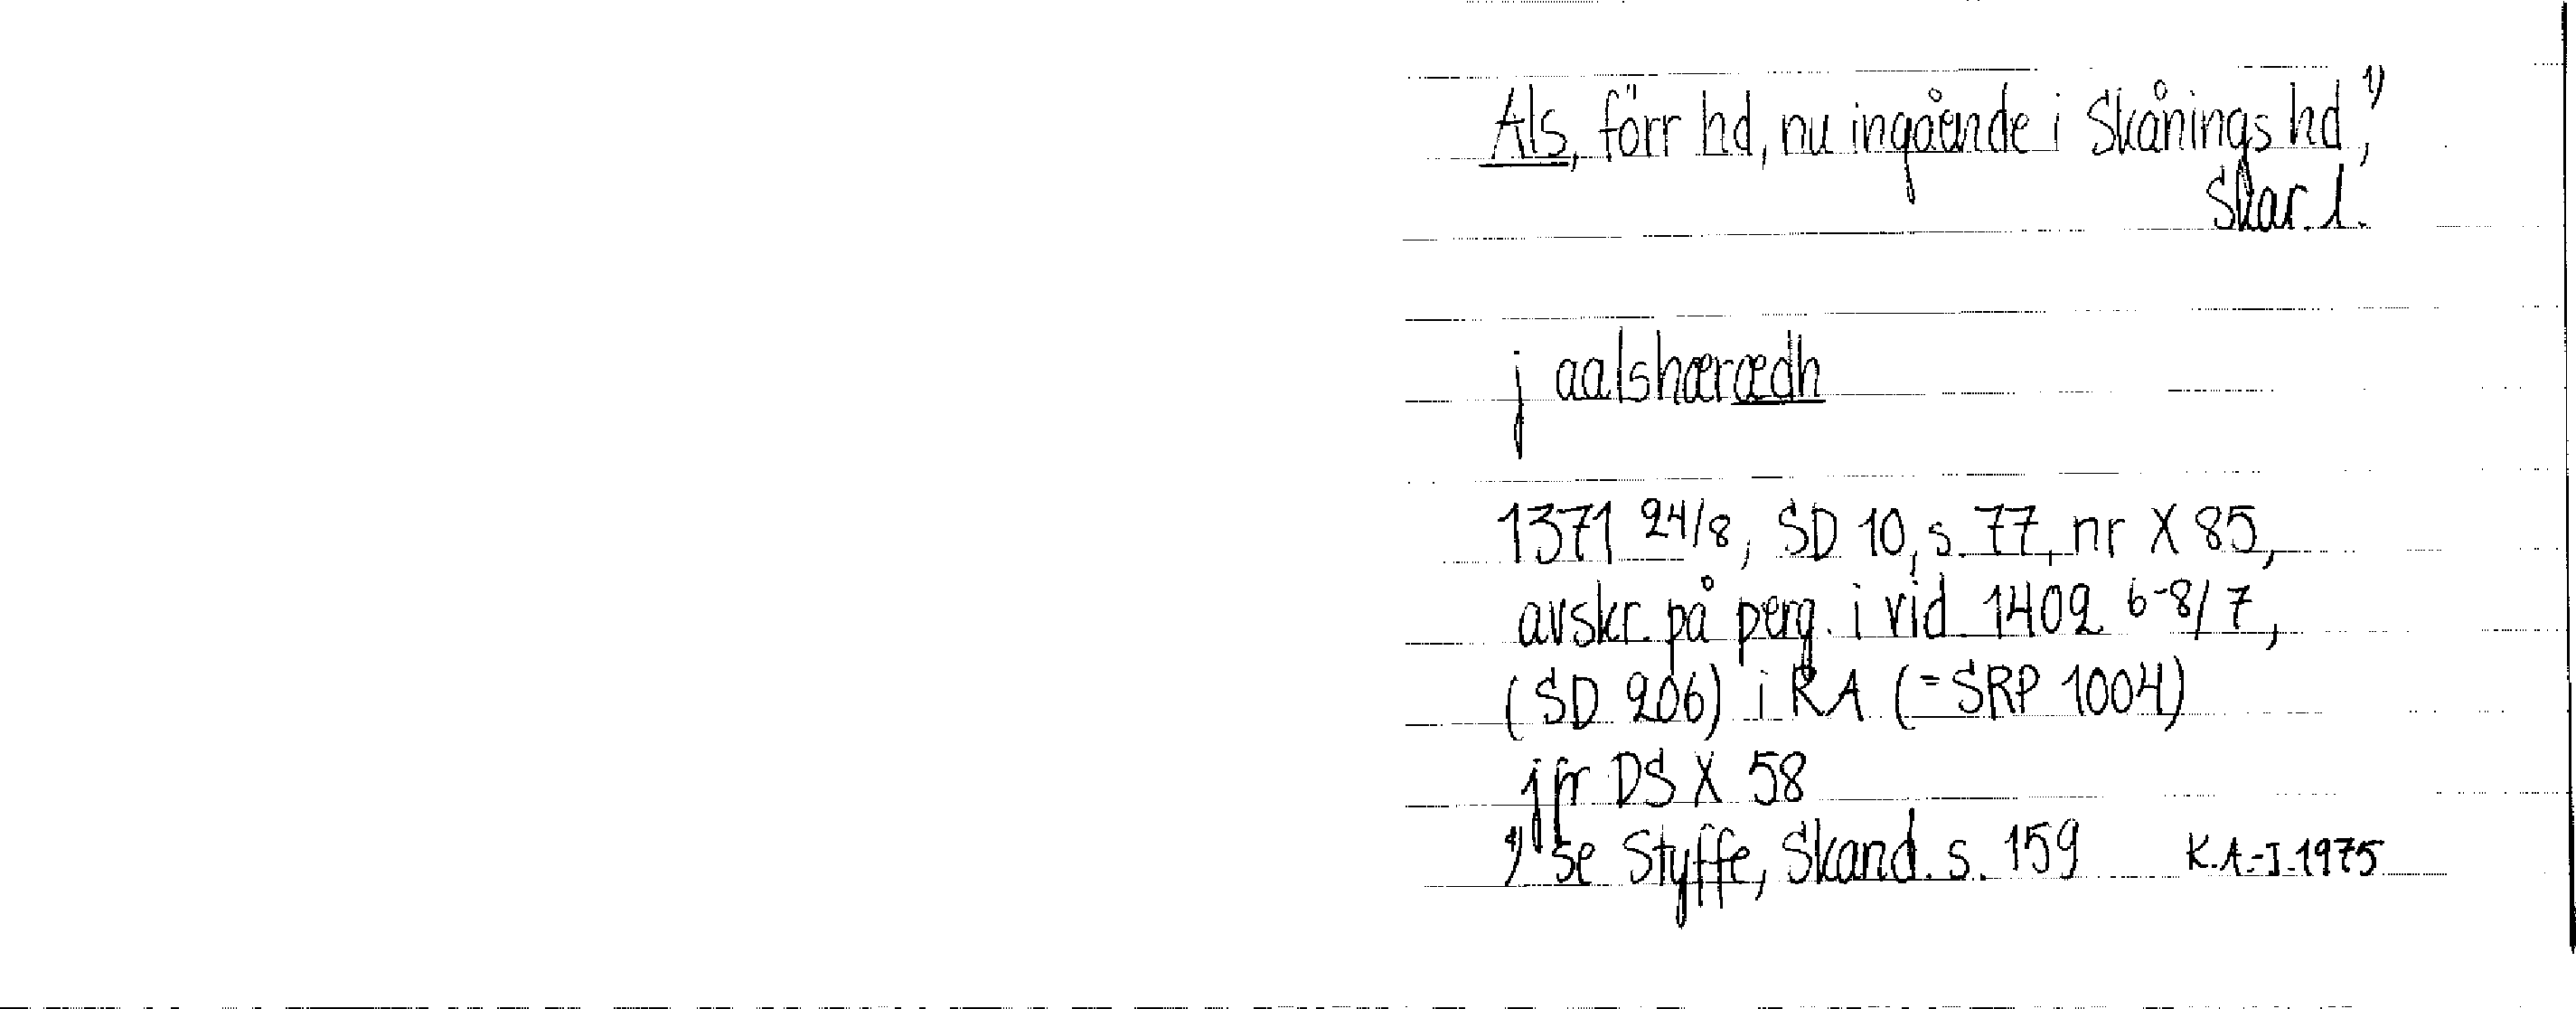 Als, förr hd, nu ingående i Skånings hd,¹⁾
Skar. l.
j aalshærædh
1371 24/8, SD 10, s. 77, nr X 85,
avskr. på perg. i vid. 1402 6-8/7,
(SD 206) i RA (=SRP 1004)
jfr DS X 58
¹⁾ se Styffe, Skand. s. 159 K.A.-I.1975